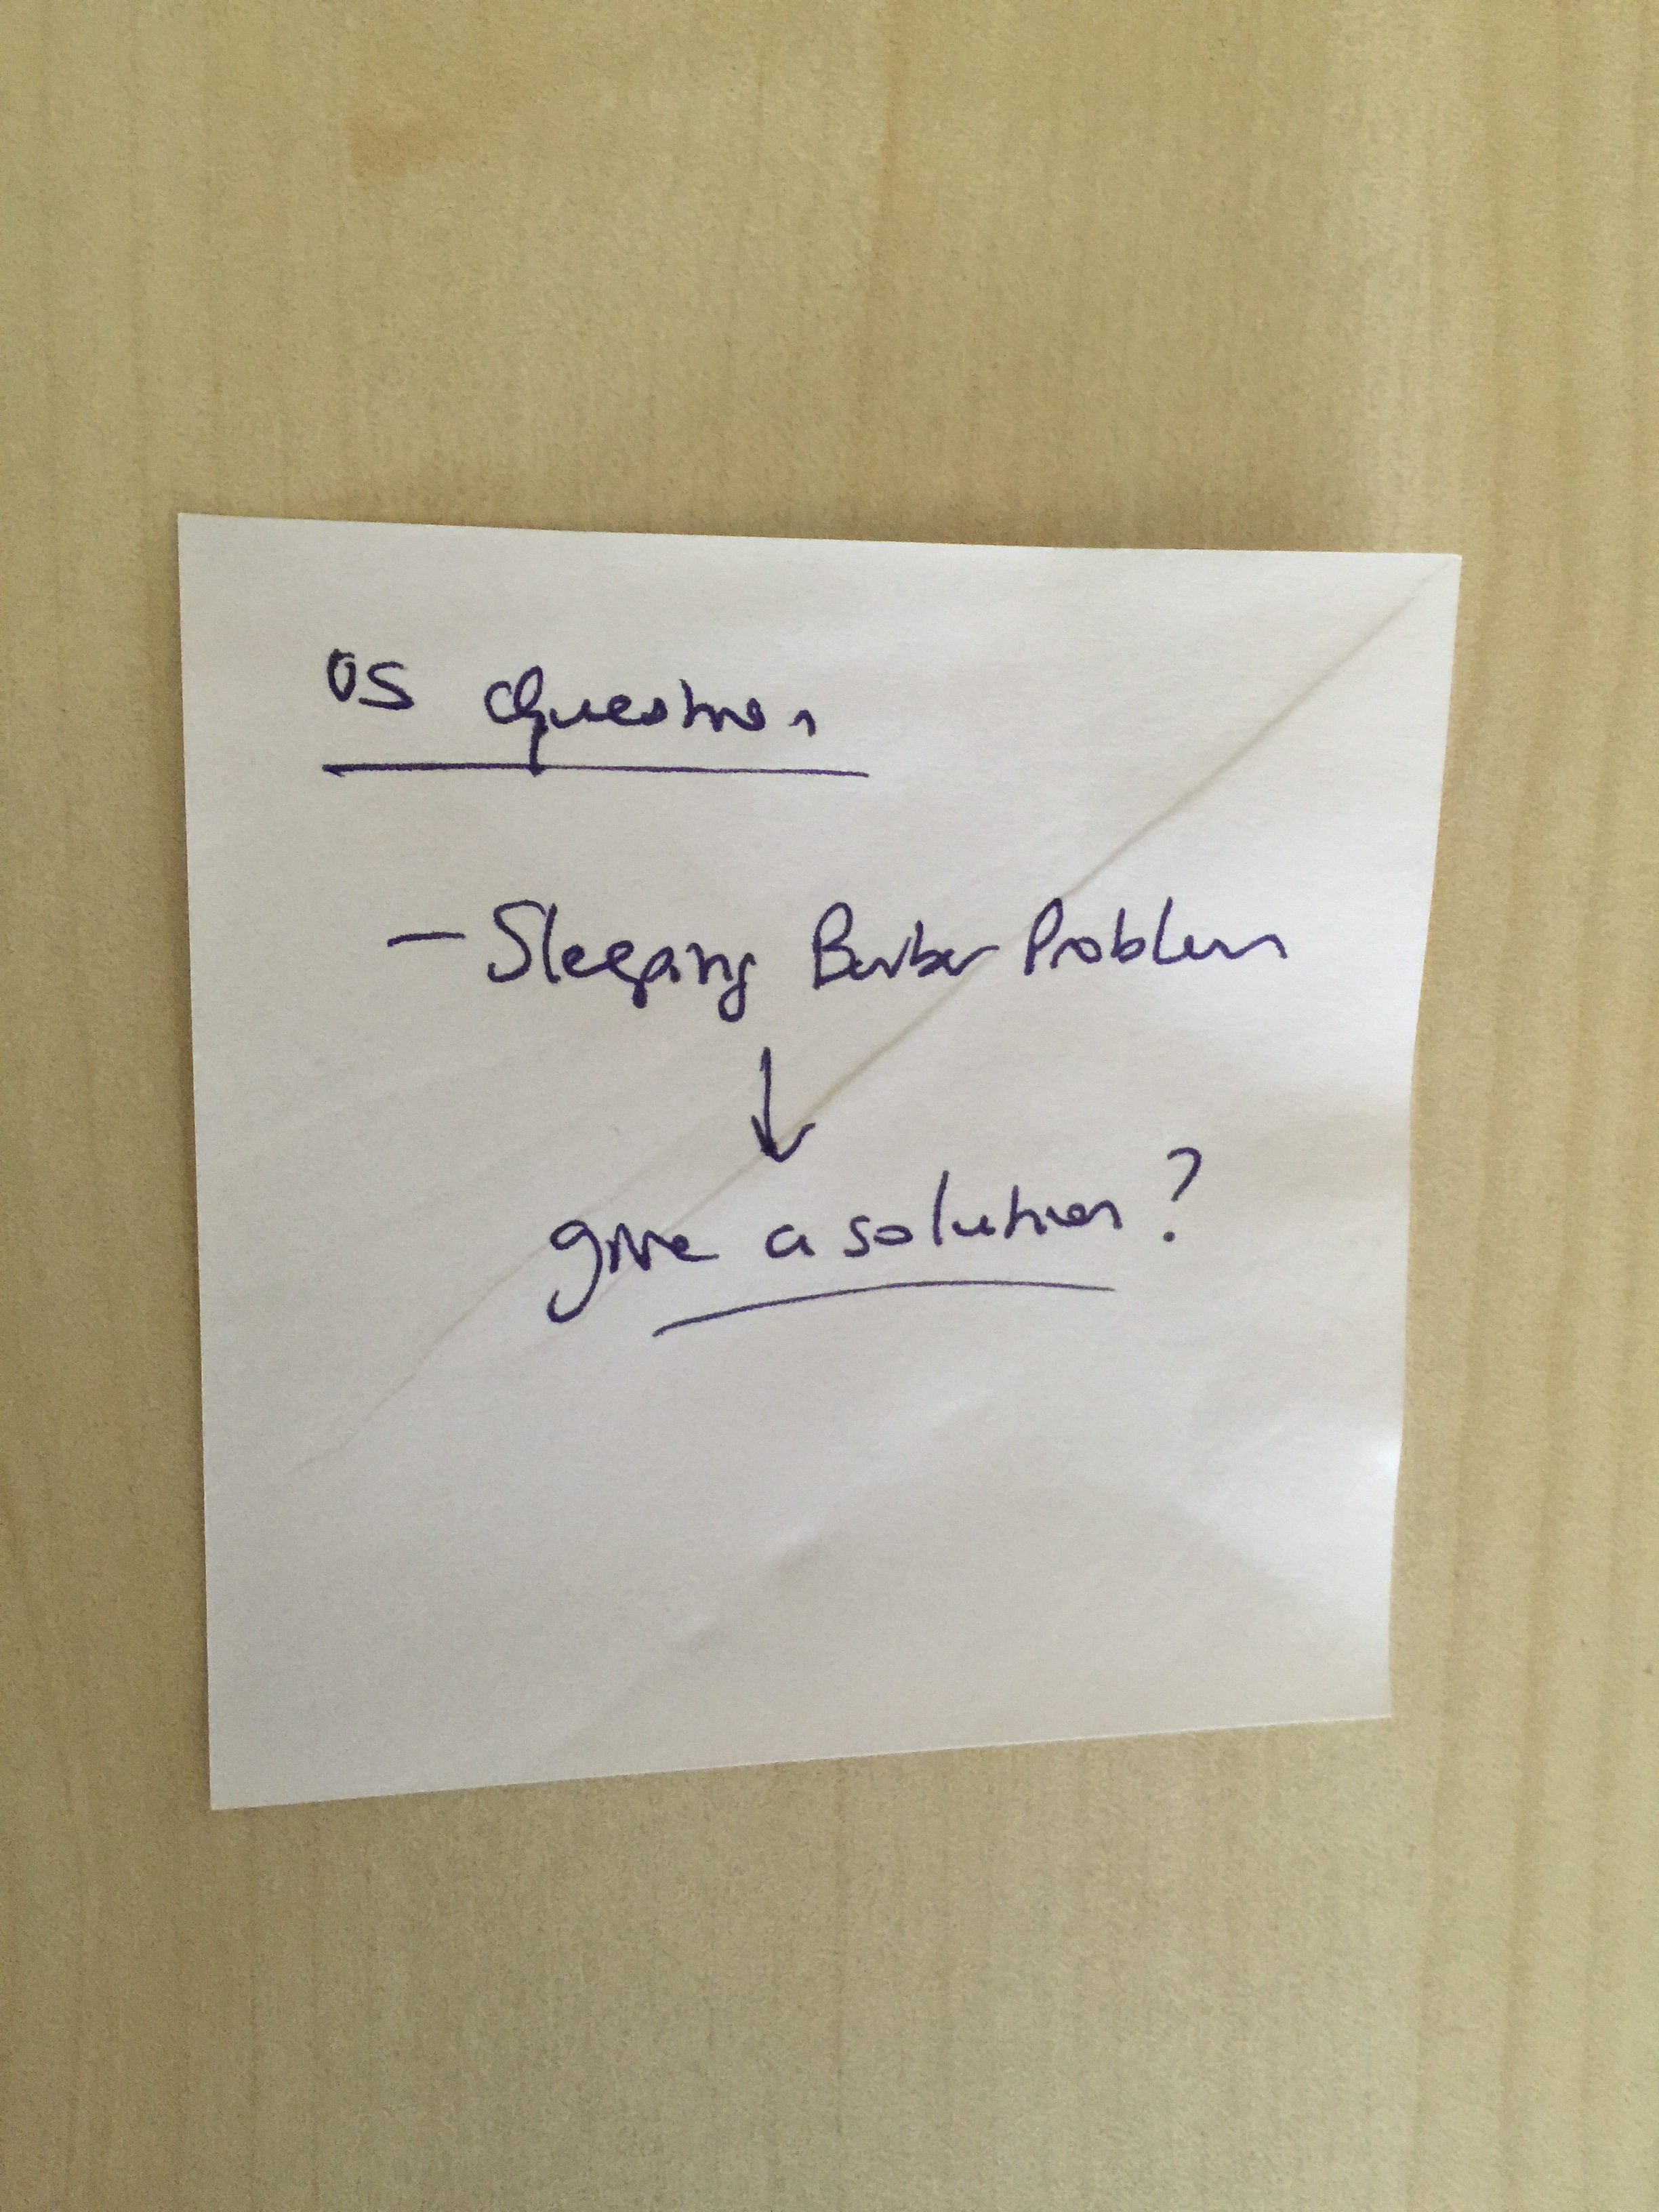 OS Question
- Sleeping Barber Problem
↓
give a solution?